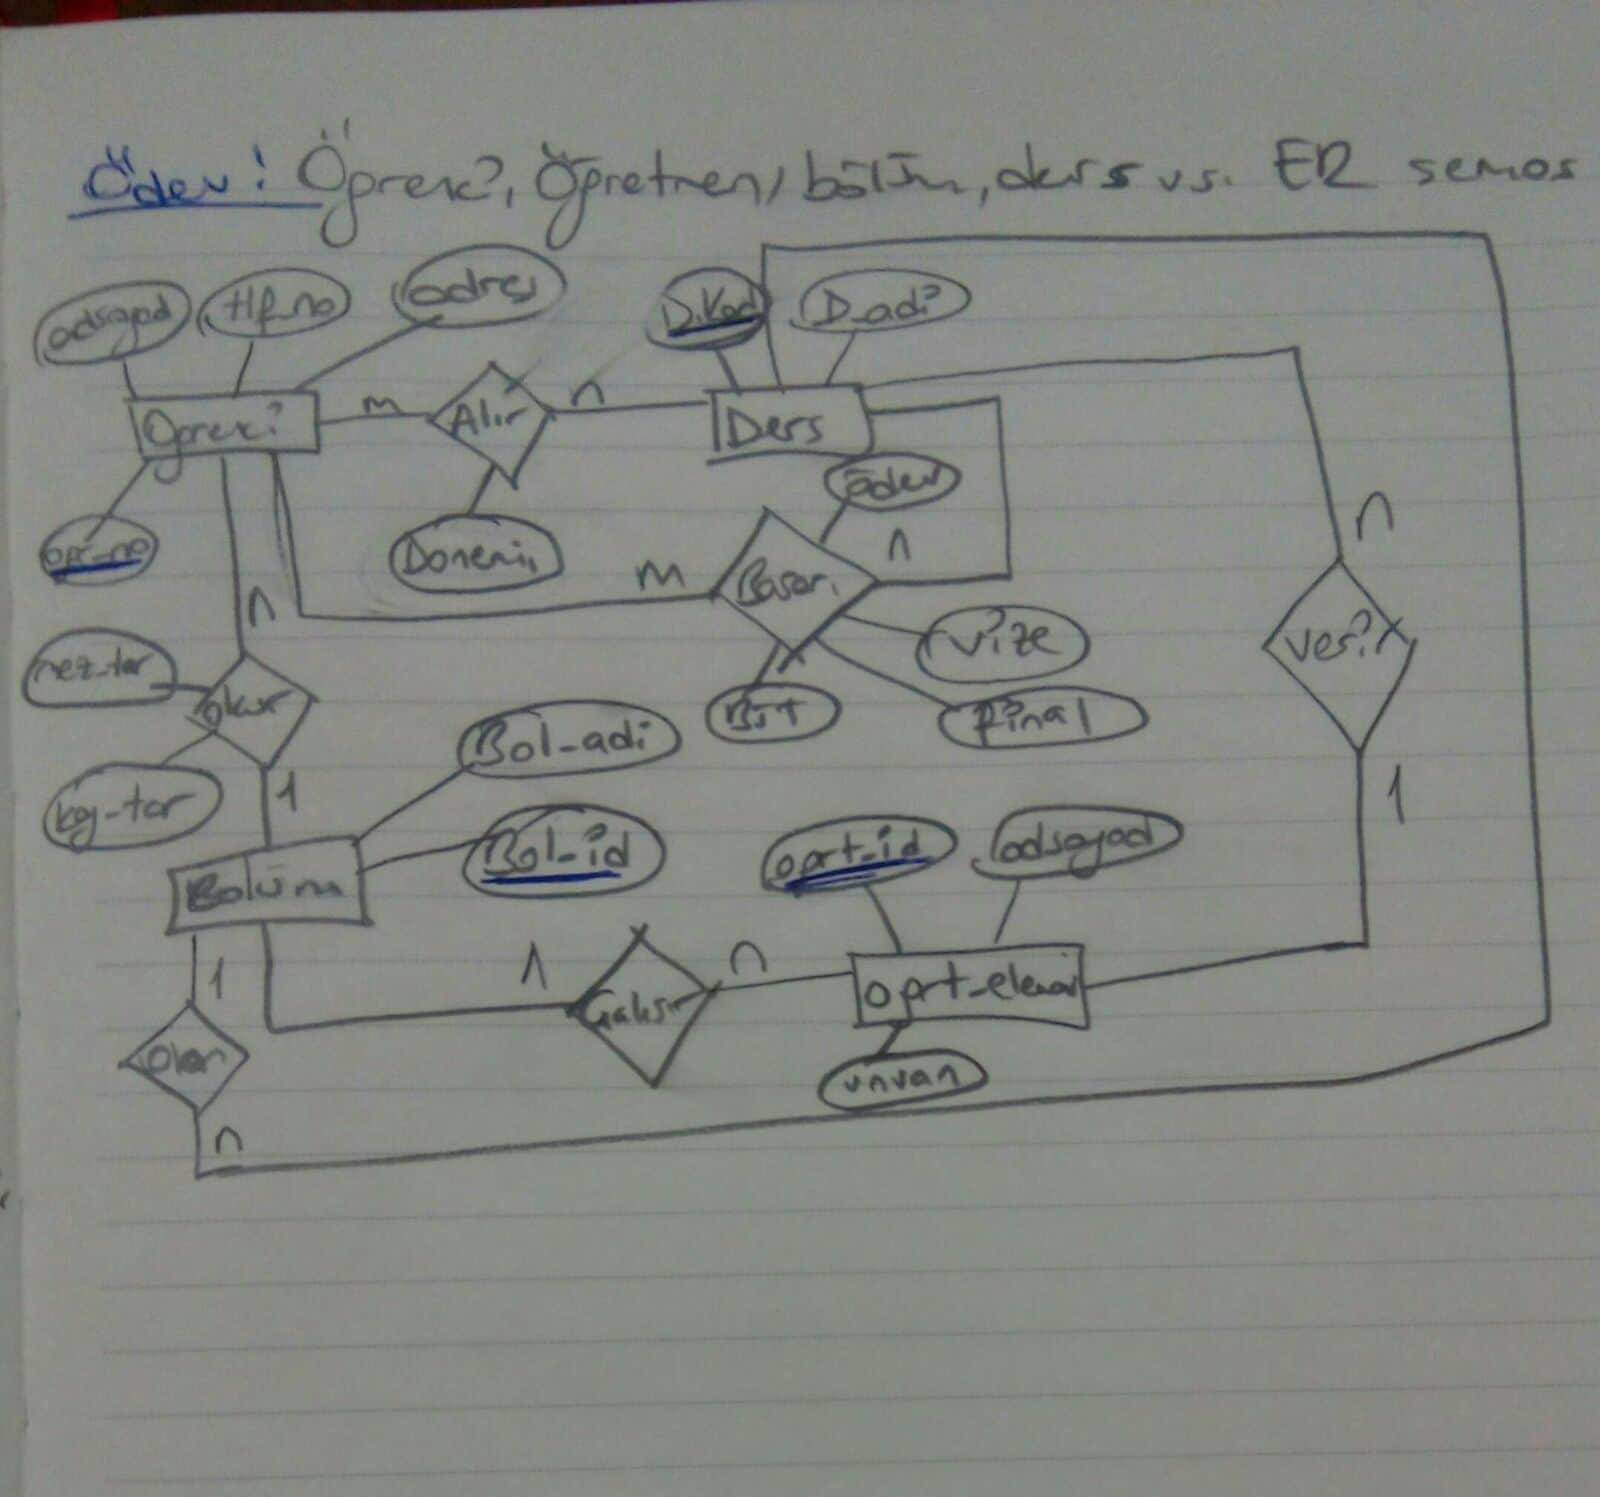 Ödev! Öğrenci, Öğretmen, bölüm, ders vs. ER şeması
adsoyad tlf_no adres D.Kod D_adi
Öğrenci m Alır n Ders
ödev
öğr_no Dönemi n n
m Başarı
n
mez_tar vize verir
okur
BÜT final
Bol_adi
kay_tar 1 1
Bol_id öğrt_id adsoyad
Bölüm
1 n
1 Çalışır öğrt_elemanı
Olan ünvan
n